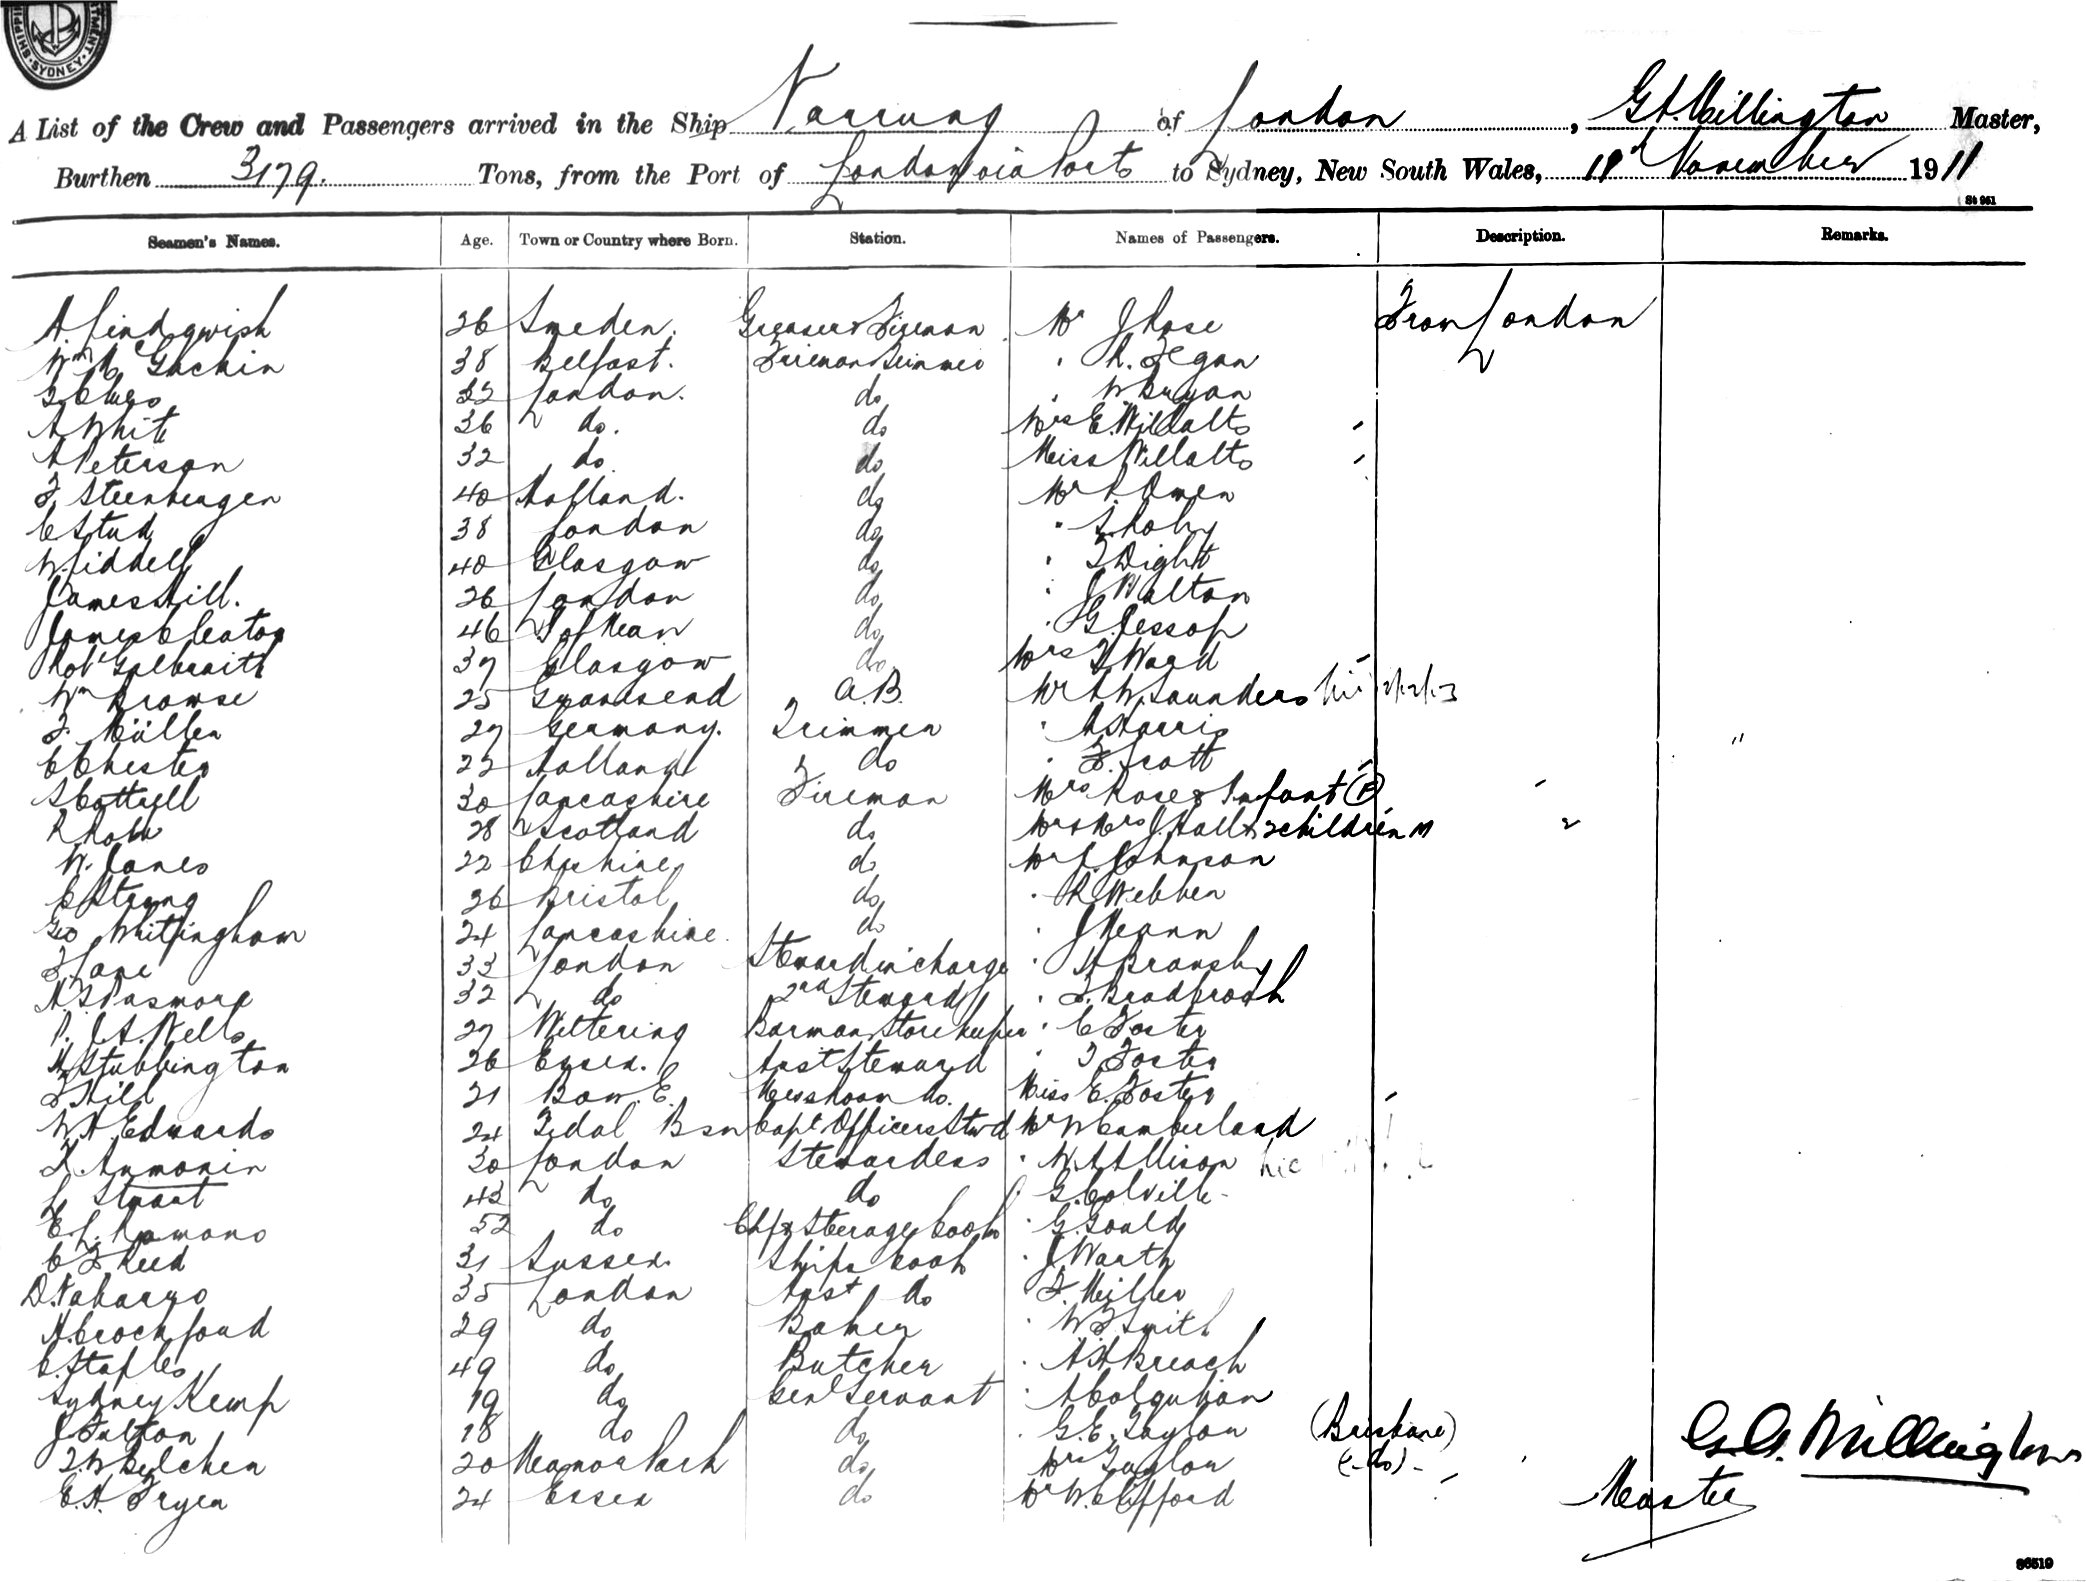 SHIPPING DEPARTMENT. SYDNEY.
A List of the Crew and Passengers arrived in the Ship Narrung of London, G. A. Millington Master,
Burthen 3179. Tons, from the Port of London via Ports to Sydney, New South Wales, November 1911
St 961
Seamen's Names. Age. Town or Country where Born. Station. Names of Passengers. Description. Remarks.
A. Lindqwish 26 Sweden. Greaser & Fireman Mr J Rose From London
Wm Mc Gachin 38 Belfast. Fireman Trimmer " R. Fegan
32 London. do " W. Bryan
A White 36 do. do Mrs E. Willalts "
A Peterson 32 do. do Miss Willalts "
F. Steenbergen 40 Holland. do Mr Owen
C Stud 38 London do "
W Liddell 40 Glasgow do " Dight
James Hill. 26 London do " J Walton
James Cleator 46 I of Man do " G. Jessop
Robt Galbraith 37 Glasgow do Mrs Ward
Wm Prowse 25 Gravesend A.B. Mr A W. Saunders
F. Müller 27 Germany. Trimmer " A Harris
C Chester 22 Holland do " F. Scott "
S Cottrell 30 Lancashire Fireman Mrs Rose & Infant (B)
R Robb 28 Scotland do Mr & Mrs J. Hall & 2 children
W. Jones 22 Cheshire do Mr Johnson
C Strong 26 Bristol do " R Webber
Geo Whittingham 24 Lancashire. do " J Mann
F Lane 33 London Steward in charge " A Bransby
A. Pasmore 32 do 2nd Steward " F. Bradbrook
P. J. A. Wells 27 Wittering Barman Storekeeper " C Foster
H Stubbington 26 Essex. Asst Steward " F Foster
F Hill 21 Bow. E. Messroom do. Miss E. Foster
W A Edwards 24 Tidal Bsn Capt Officers Stwd Mr W Camberland
30 London Stewardess " W. A Allison
L Stuart 43 do do G. Colville
E. L. Romano 52 do Chf & Steerage Cook " G. Gould
C F. Reed 31 Sussex. Ships Cook " J Warth
D. Nabarro 35 London Asst do " F. Miller
H. Crochford 29 do Baker " W F Smith
C. Staples 49 do Butcher " A H Breach
Sydney Kemp 19 do Genl Servant " A Colquhon
J Fulton 18 do do " G. E. Taylor (Brisbane)
20 Manor Park do Mrs Taylor (-do)-
E. H. Fryer 24 Essex do Mr W. Clifford
G. A. Millington
Master
86519